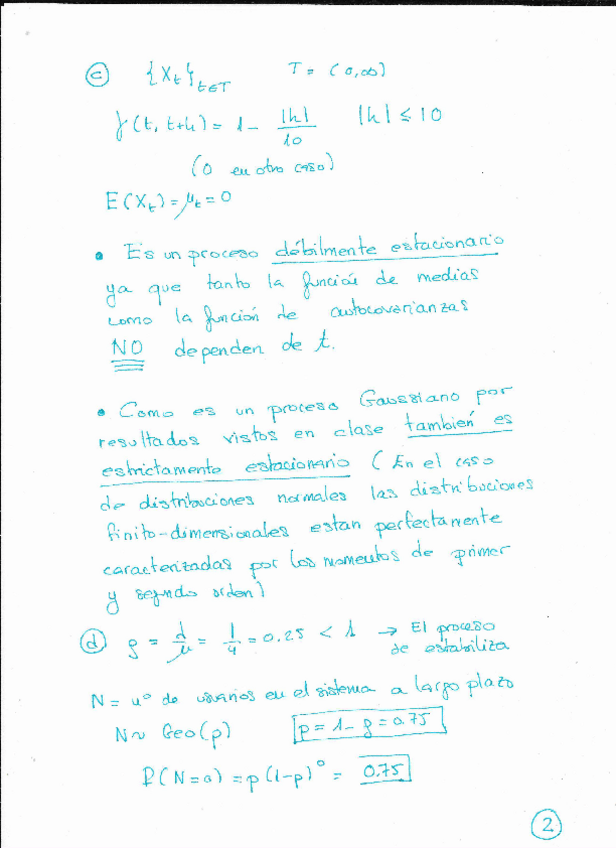 ⓒ {Xt}t∈T T = (0,∞)
γ(t, t+h) = 1 - |h|/10 |h| ≤ 10
(0 en otro caso)
E(Xt) = μt = 0
• Es un proceso débilmente estacionario
ya que tanto la función de medias
como la función de autocovarianzas
NO dependen de t.
• Como es un proceso Gaussiano por
resultados vistos en clase también es
estrictamente estacionario (En el caso
de distribuciones normales las distribuciones
finito-dimensionales estan perfectamente
caracterizadas por los momentos de primer
y segundo orden)
ⓓ ρ = λ/μ = 1/4 = 0.25 < 1 → El proceso
se estabiliza
N = nº de usuarios en el sistema a largo plazo
N ~ Geo(p) p = 1 - ρ = 0.75
P(N=0) = p(1-p)⁰ = 0.75
②